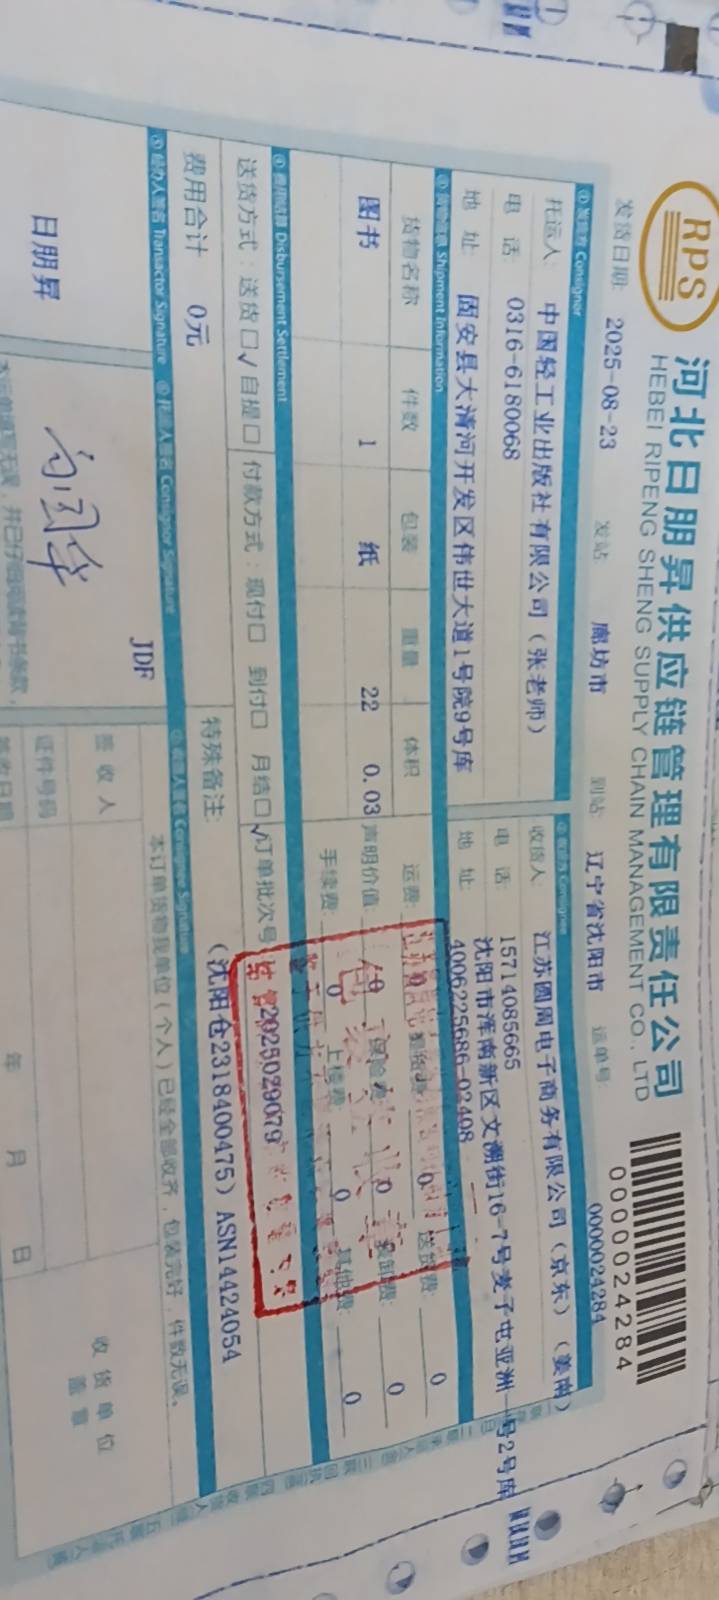 RPS
河北日朋昇供应链管理有限责任公司
HEBEI RIPENG SHENG SUPPLY CHAIN MANAGEMENT CO., LTD
0000024284
发货日期: 2025-08-23 发站 廊坊市 到站: 辽宁省沈阳市 运单号: 0000024284
① 发货方 Consignor
托运人: 中国轻工业出版社有限公司（张老师）
电 话: 0316-6180068
地 址: 固安县大清河开发区伟世大道1号院9号库
② 收货方 Consignee
收货人: 江苏圆周电子商务有限公司（京东）（姜南）
电 话: 15714085665
4006225686-02408
地 址: 沈阳市浑南新区文溯街16-7号麦子屯亚洲一号2号库
③ 货物信息 Shipment Information
货物名称 件数 包装 重量 体积
图书 1 纸 22 0.03
运费: 0 0 送货费: 0
声明价值: 0 保险费: 0 装卸费: 0
手续费: 0 上楼费: 0 其他费: 0
④ 费用结算 Disbursement Settlement
送货方式：送货□√ 自提□ 付款方式：现付□ 到付□ 月结□√ 订单批次号 2025029079
费用合计 0元
特殊备注: （沈阳仓2318400475）ASN14424054
⑤ 经办人签名 Transactor Signature
⑥ 托运人签名 Consignor Signature
⑦ 收货人签名 Consignee Signature
日朋昇
JDF
本订单货物我单位（个人）已经全部收齐，包装完好，件数无误。
签 收 人
证件号码
签收日期 年 月 日
收 货 单 位
盖 章